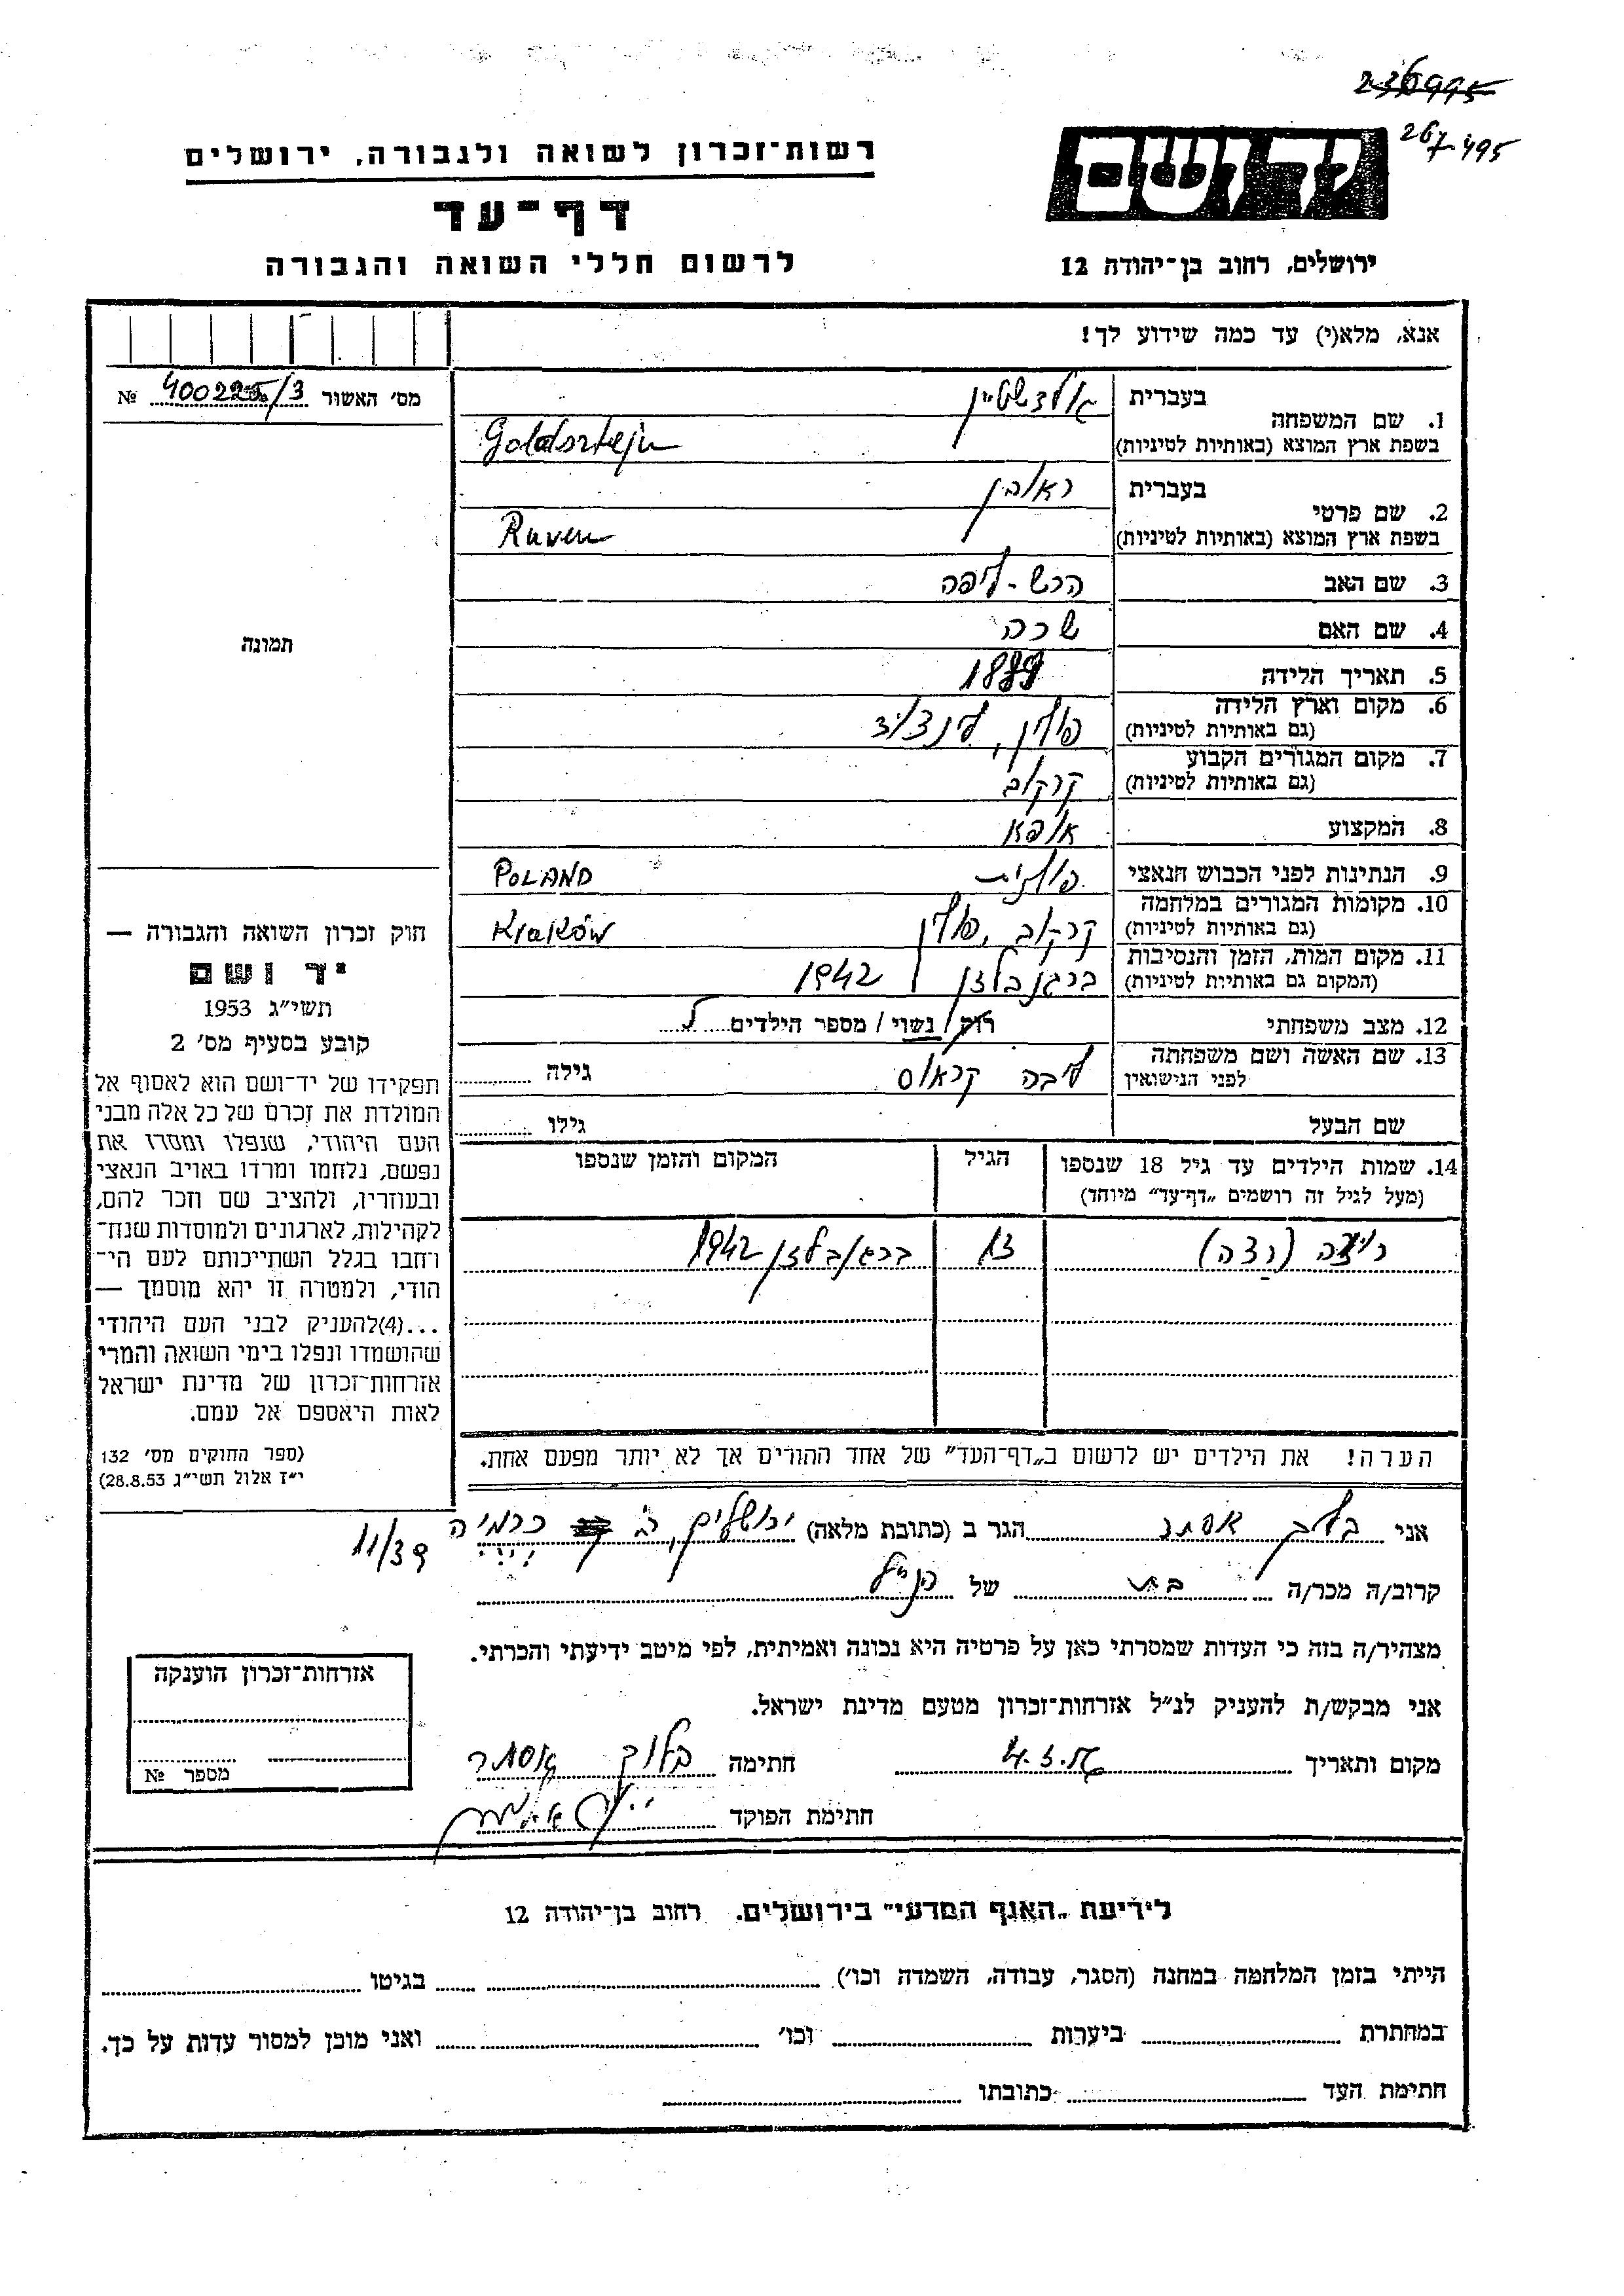 267.495
רשות־זכרון לשואה ולגבורה, ירושלים
דף־עד
לרשום חללי השואה והגבורה
יד ושם
ירושלים, רחוב בן־יהודה 12
אנא, מלא(י) עד כמה שידוע לך!
מס׳ האשור № 400225/3
1. שם המשפחה
בעברית גולדשטיין
בשפת ארץ המוצא (באותיות לטיניות) Goldsztejn
2. שם פרטי
בעברית ראובן
בשפת ארץ המוצא (באותיות לטיניות) Ruven
3. שם האב הרש - ליפה
4. שם האם שרה
5. תאריך הלידה 1889
6. מקום וארץ הלידה
(גם באותיות לטיניות) פולין,
7. מקום המגורים הקבוע
(גם באותיות לטיניות) קרקוב
8. המקצוע אופא
9. הנתינות לפני הכבוש הנאצי פולנית POLAND
10. מקומות המגורים במלחמה
(גם באותיות לטיניות) קרקוב, פולין Kraków
11. מקום המות, הזמן והנסיבות
(המקום גם באותיות לטיניות) ברגן בלזן 1942
12. מצב משפחתי רוק / נשוי / מספר הילדים
13. שם האשה ושם משפחתה
לפני הנישואין ליבה קראוס גילה
שם הבעל גילו
14. שמות הילדים עד גיל 18 שנספו
(מעל לגיל זה רושמים „דף־עד״ מיוחד)
הגיל
המקום והזמן שנספו
(רצה) ברגן בלזן 1942
הערה! את הילדים יש לרשום ב„דף־העד״ של אחד ההורים אך לא יותר מפעם אחת.
תמונה
חוק זכרון השואה והגבורה —
יד ושם
תשי״ג 1953
קובע בסעיף מס׳ 2
תפקידו של יד־ושם הוא לאסוף אל
המולדת את זכרם של כל אלה מבני
העם היהודי, שנפלו ומסרו את
נפשם, נלחמו ומרדו באויב הנאצי
ובעוזריו, ולהציב שם וזכר להם,
לקהילות, לארגונים ולמוסדות שנח־
רחבו בגלל השתייכותם לעם הי־
הודי, ולמטרה זו יהא מוסמך —
...(4)להעניק לבני העם היהודי
שהושמדו ונפלו בימי השואה והמרי
אזרחות־זכרון של מדינת ישראל
לאות היאספם אל עמם.
(ספר החוקים מס׳ 132
י״ז אלול תשי״ג 28.8.53)
אני בלוך אסתר הגר ב (כתובת מלאה) ירושלים, 11/39
קרוב/ה מכר/ה בת של הנ״ל
מצהיר/ה בזה כי העדות שמסרתי כאן על פרטיה היא נכונה ואמיתית, לפי מיטב ידיעתי והכרתי.
אני מבקש/ת להעניק לנ״ל אזרחות־זכרון מטעם מדינת ישראל.
מקום ותאריך חתימה בלוך אסתר
חתימת הפוקד
אזרחות־זכרון הוענקה
מספר №
לידיעת „האגף המדעי״ בירושלים. רחוב בן־יהודה 12
הייתי בזמן המלחמה במחנה (הסגר, עבודה, השמדה וכו׳) בגיטו
במחתרת ביערות וכו׳ ואני מוכן למסור עדות על כך.
חתימת העד כתובתו